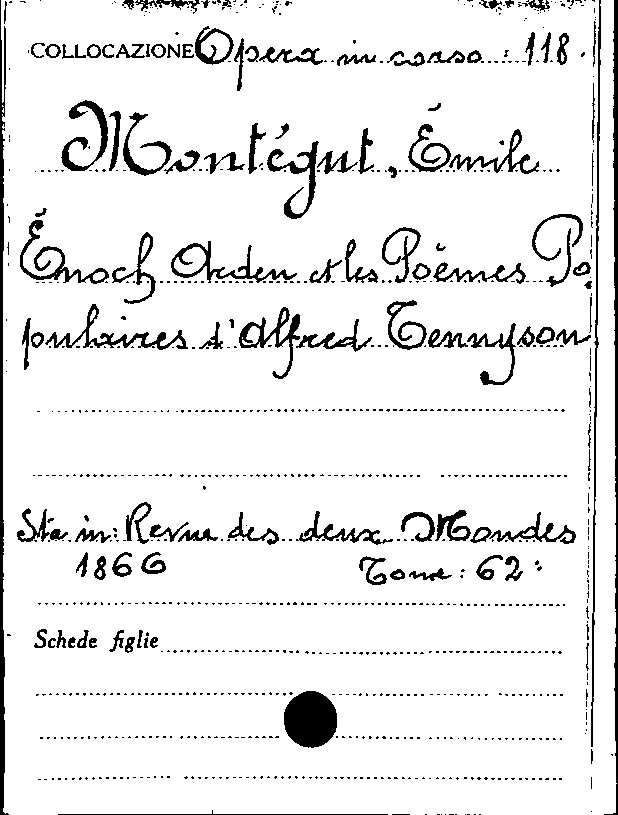 COLLOCAZIONE Opera in corso : 118.
Montégut, Émile
Énoch Arden et les Poëmes Po
pulaires d'Alfred Tennyson
Sta in: Revue des deux Mondes
1866 Tome : 62:
Schede figlie